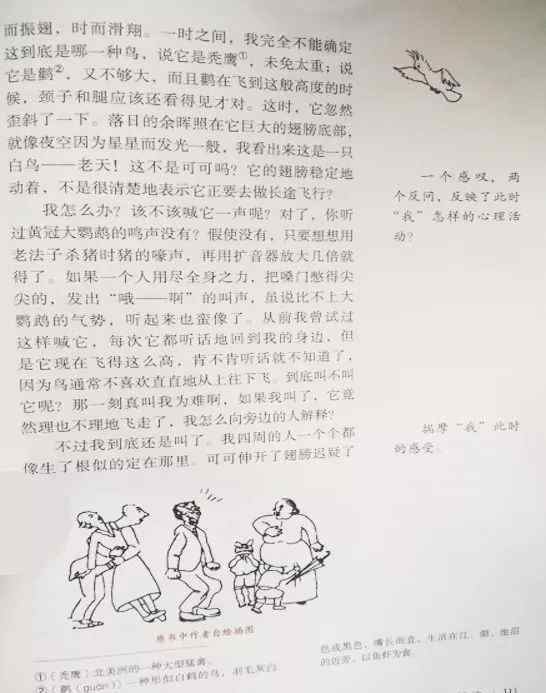 而振翅，时而滑翔。一时之间，我完全不能确定
这到底是哪一种鸟，说它是秃鹰①，未免太重；说
它是鹳②，又不够大，而且鹳在飞到这般高度的时
候，颈子和腿应该还看得见才对。这时，它忽然
歪斜了一下。落日的余晖照在它巨大的翅膀底部，
就像夜空因为星星而发光一般，我看出来这是一只
白鸟——老天！这不是可可吗？它的翅膀稳定地
动着，不是很清楚地表示它正要去做长途飞行？
一个感叹，两
个反问，反映了此时
“我”怎样的心理活
动？
我怎么办？该不该喊它一声呢？对了，你听
过黄冠大鹦鹉的鸣声没有？假使没有，只要想想用
老法子杀猪时猪的嚎声，再用扩音器放大几倍就
得了。如果一个人用尽全身之力，把嗓门憋得尖
尖的，发出“哦——啊”的叫声，虽说比不上大
鹦鹉的气势，听起来也蛮像了。从前我曾试过
这样喊它，每次它都听话地回到我的身边，但
是它现在飞得这么高，肯不肯听话就不知道了，
因为鸟通常不喜欢直直地从上往下飞。到底叫不叫
它呢？那一刻真叫我为难啊，如果我叫了，它竟
然理也不理地飞走了，我怎么向旁边的人解释？
不过我到底还是叫了。我四周的人一个个都
像生了根似的定在那里。可可伸开了翅膀迟疑了
揣摩“我”此时
的感受。
原书中作者自绘插图
①〔秃鹰〕北美洲的一种大型猛禽。
②〔鹳（guàn）〕一种形似白鹤的鸟，羽毛灰白
色或黑色，嘴长而直，生活在江、湖、池沼
的近旁，以鱼虾为食。